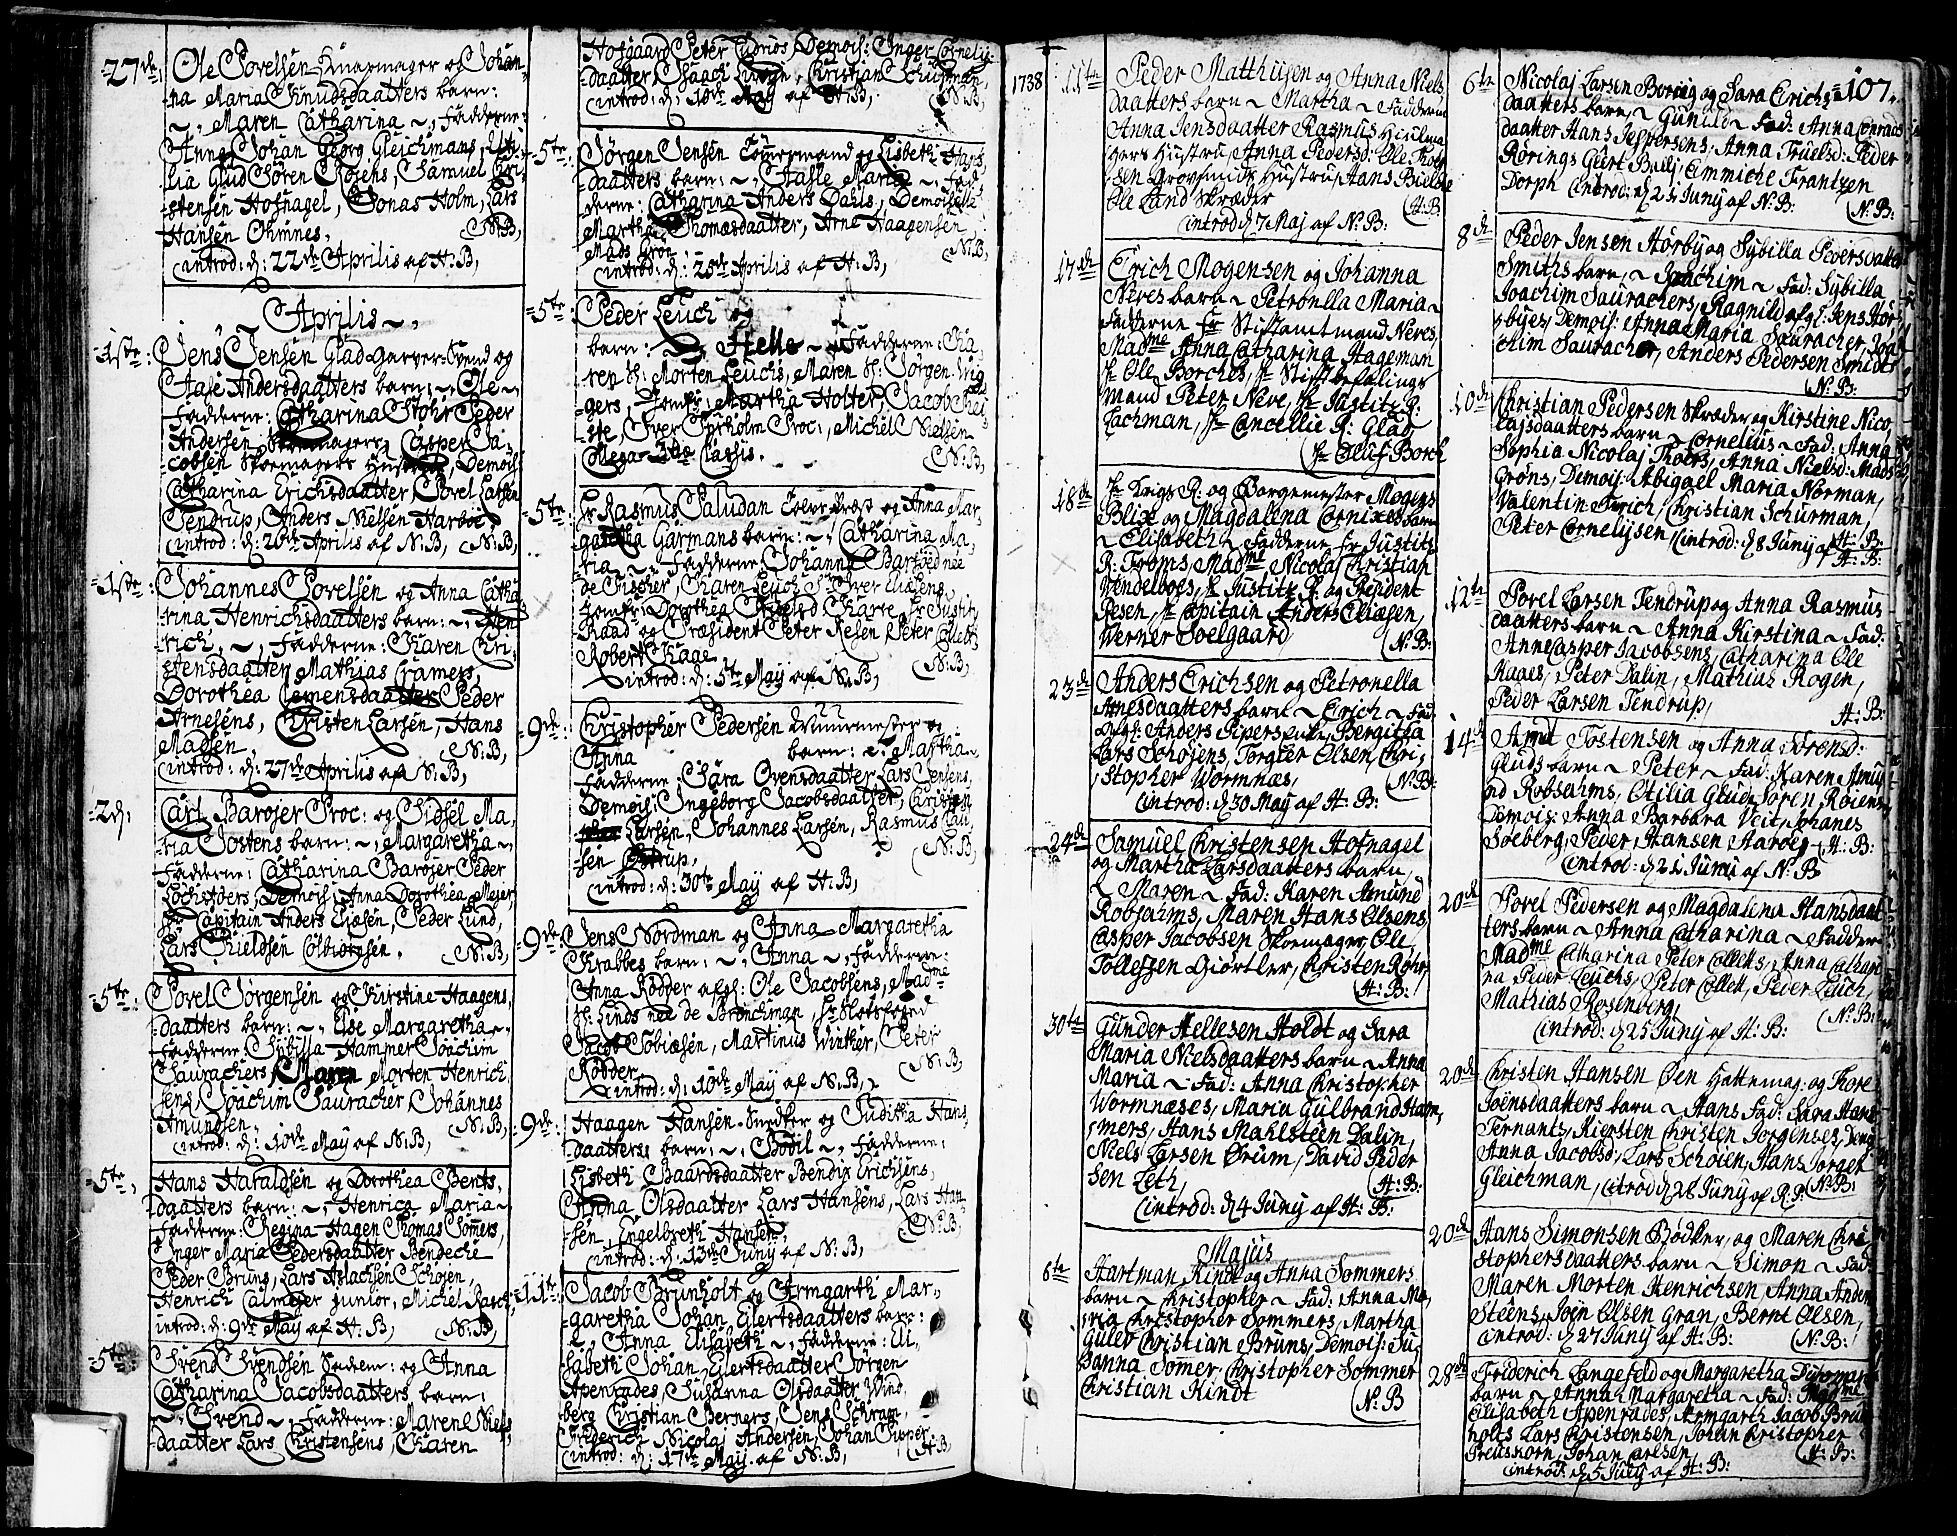 27de
Ole Povelsen Knapmager og Johan-
na Maria Knudsdaatters barn:
~, Maren Catharina ~, Fadderne:
Anna Johan Georg Gleichmans, Oti-
lia Glud Søren Røiens, Samuel Chri-
stensen Hofnagel, Jonas Holm, Lars
Hansen Ohmnes. N:B,
introd: d: 22de Aprilis af H:B,
Aprilis ~,
1ste:
Jens Jensen Glad Garver Svend og
Aase Andersdaatters barn: ~, Ole ~,
Fadderne: Catharina Stohr Peder
Andersen Skomagers, Casper Ja-
cobsen Skomagers Hustrue, Demois:
Catharina Erichsdaatter, Povel Larsen
Tendrup, Anders Nielsen Harboe
introd: d: 26de Aprilis af N:B, N:B,
1ste:
Johannes Povelsen og Anna Catha-
rina Henrichsdaatters barn: ~, Hen-
rich, ~, Fadderne: Karen Chri-
stensdaatter Mathias Cramers,
Dorothea Clemensdaatter Peder
Arnesens, Christen Larsen, Hans
Madsen, N:B,
introd: d: 27de Aprilis af N:B,
2d:
Carl Barojer Proc: og Sidsel Ma-
ria Jostens barn: ~, Margaretha ~,
Fadderne: Catharina Barojer Peder
Demois: Anna Dorothea Meyer,
Hr Capitain Anders Eliæsen, Peder Lund,
Lars Kieldsen Colbiørnsen. N:B,
5te:
Povel Jørgensen og Kirstine Haagens-
daatters barn: ~, Else Margaretha ~,
Fadderne: Sybilla Hammer Joachim
Saurachers, Maren Morten Henrich-
sens, Joachim Sauracher, Johannes
Amundsen, N:B,
introd: d: 10de May af N:B,
5te,
Hans Haraldsen og Dorothea Bents-
daatters barn: ~, Henrica Maria ~
Fadderne: Regina Hagen Thomas Somers,
Inger Maria Pedersdaatter Bendeche
Peder Bruns, Lars Aslachsen Schøjen,
Henrich Calmeyer junior, Michel Rasch,
introd: d: 9de May af H:B, N:B,
5te:
Svend Svendsen og Anna
Catharina Jacobsdaatters barn:
~, Svend ~, Fadderne: Maren Niels-
daatter Lars Christensens, Karen
Hofgaard Peter Demois: Inger Cornelij-
daatter, Isaach Christian Schurman,
introd: d: 10de May af H:B, N:B,
5te:
Jørgen Jensen Tømmermand og Lisbeth Hans-
daatters barn: ~, Aasle Maria ~, Fad-
derne: Catharina Anders Dahls, Demoiselle
Martha Thomasdaatter, Arne Haagensen,
Mads Grøn, N:B,
introd: d: 25de Aprilis af H:B,
5te:
Peder Leuch og
barn: ~, Helle ~, Fadderne: Ka-
ren Hr: Morten Leuchs, Maren Hr: Jørgen Wig-
gers, Jomfr: Martha Holter, Jacob
Iver Sørholm Proc:, Michel Nielsen
Collega 3tiæ Classis. N:B,
5te:
Hr Rasmus Paludan og Anna Mar-
garetha Garmans barn: ~, Catharina Ma-
ria ~, Fadderne: Johanna Barsøe née
de Fischer, Karen Leuch Sr Iver Eliæsens,
Jomfr: Dorothea Hr Justitz-
Raad og Præsident Peter Resen, Peter Collett,
Robert Kage
introd: d: 5te May af N:B, N:B,
9de:
Christopher Pedersen Muurmester og
Anna barn: ~, Martha ~
Fadderne: Sara Ovensdaatter Lars Jensens,
Demois: Ingeborg Jacobsdaatter, Christen
Larsen, Johannes Larsen, Rasmus
N:B,
introd: d: 30te May af H:B,
9de:
Jens Nordman og Anna Margaretha
Krabbes barn: ~, Anna ~, Fadderne:
Anna Rødder afgl: Ole Jacobsens, Madme
Hr: Linds née de Bronchman, Hr Slotsfoged
Jacob Tobiæsen, Martinus Winther, Peter
Rødder N:B,
introd: d: 10de May af N:B,
9de:
Haagen Hansen Snedker og Juditha Hans-
daatters barn: ~, Bodil ~, Fadderne:
Lisbeth Baardsdaatter Bendix Erichsens,
Anna Olsdaatter Lars Hansens, Lars Han-
sen, Engelbreth Hansen, N:B,
introd: d: 13de Juny af N:B,
11te:
Jacob Brunholt og Armgarth Mar-
garetha Johan Eilertsdaatters barn:
~, Anna Elisabeth ~, Fadderne: Eli-
sabeth Johan Eilertsdaatter Jørgen
Apenrades, Susanna Olsdaatter Wind-
berg Christian Berners, Jens Schram,
Friderich Nicolaj Andersen, Johan Cuper,
introd: d: 17de May af N:B, H:B,
1738
11te
Peder Matthisen og Anna Niels-
daatters barn ~ Martha ~ Faddern
Anna Jensdaatter Rasmus Hiulma-
gers Hustru, Anna Pedersd: Ole Thor-
sen Grovsmids Hustru, Hans
Ole Land Skræder H:B
introd d 7 Maj af N:B:
17de
Erich Mogensen og Johanna
Neves barn ~ Petronella Maria ~
Fadderne Fr Stiftamtmand Neves,
Madme Anna Catharina Hageman
Hr Ole Borches, Hr Stiftbefalings
mand Peter Neve, Hr Justitz R:
Lachman, Hr Cancellie R: Glad
Hr Oluf Borch
18de
Hr Krigs R: og Borgemester Mogens
Blix og Magdalena Cornixes barn
~ Elisabeth ~ Fadderne Fr Justitz
R: Froms Madme Nicolaj Christian
Wendelboes, Hr Justitz R: og Præsident
Resen, Hr Capitain Anders Eliæsen,
Werner Soelgaard N:B:
23de
Anders Erichsen og Petronella
Arnesdaatters barn ~ Erich ~ Fad:
Afgl: Anders Pipers Enke Bergitha
Lars Schøjens, Torgier Olsen, Chri-
stopher Wormnæs, N:B:
introd: d 30 May af H:B:
24de
Samuel Christensen Hofnagel
og Martha Larsdaatters barn,
~ Maren ~ Fad: Karen Amund
Robsams, Maren Hans Olsens,
Casper Jacobsen Skomager, Ole
Tollefzen Giørtler, Kristen Rohr,
H:B:
30te
Gunder Hellesen Holdt og Sara
Maria Nielsdaatters barn ~ Anna
Maria ~ Fad: Anna Christopher
Wormnæses, Maria Gulbrand Ham-
mers, Hans Mahlsteen Dalin,
Niels Larsen Ørum, David Peder
sen Leth, H:B:
introd: d 4 Juny af H:B:
Majus
6te
Hartman Kindt og Anna Sommers
barn ~ Christopher ~ Fad: Anna Ma-
ria Christopher Sommers, Martha
Gulev Christian Bruns, Demois: Su-
sanna Somer, Christopher Sommer
Christian Kindt N:B
107
6te
Nicolaj Larsen Borrig og Sara Erichs-
daatters barn ~ Gunild ~ Fad: Anna Conrads
daatter Hans Jespersens, Anna Truelsd: Peder
Rørings Geert Billy, Emmiche Frantzen
Dorph introd: d 21 Juny af N:B: N:B:
8de
Peder Jensen Hørbÿ og Sybilla Peversdatter
Smiths barn, ~ Joachim ~ Fad: Sybilla
Joachim Saurachers, Ragnild afgl: Jens Hør-
byes, Demois: Anna Maria Sauracher, Joa-
chim Sauracher, Anders Pedersen Smidt
N:B:
10de
Christian Pedersen Skræder og Kirstine Nico-
lajsdaatters barn ~ Cornelius ~ Fad: Anna
Sophia Nicolaj Thoers, Anna Nielsd: Mads
Grøns, Demois: Abigael Maria Norman,
Valentin Christian Schurman,
Peter Cornelijsen, introd: d 8 Juny af H:B:
H:B:
12te
Povel Larsen Tendrup og Anna Rasmus
daatters barn ~ Anna Kirstina ~ Fad:
Anne Casper Jacobsens, Catharina Ole
Haaes, Peter Dalin, Mathias Rogen,
Peder Larsen Tendrup, H:B:
14de
Arnt Tostensen og Anna Sørensd:
Gluds barn ~ Peter ~ Fad: Karen Amu-
nd Robsams, Otilia Glud Søren Røiens,
Demois: Anna Barbara Veit, Johanes
Soeberg, Peder Hansen Aaroe, H:B:
introd: d 21 Juny af N:B
20de
Povel Pedersen og Magdalena Hansdaat-
ters barn ~ Anna Catharina ~ Fadder:
Madme Catharina Peter Colletts, Anna Cathari-
na Peder Leuchs, Peter Collett, Peder Leuch,
Mathias Rosenberg, N:B:
introd: d 25 Juny af H:B:
20de
Christen Hansen Øen Hattemag: og Thore
Joensdaatters barn ~ Hans Fad: Sara Hans
Ternants, Kiersten Christen Jørgenses,
Anna Jacobsd, Lars Schøien, Hans Jørgen
Gleichman, introd d 28 Juny af R:P: N:B:
20de
Hans Simonsen Bødker, og Maren Chri-
stophersdaatters barn ~ Simon ~ Fad:
Maren Morten Henrichsen, Anna Anders
Steens, Joen Olsen Gran, Bernt Olsen,
introd: d 27 Juny af H:B: N:B:
28de
Friderich Langefeld og Margaretha
barn ~ Anna Margaretha ~ Fad: Madme
Elisabeth Apenrades, Armgarth Jacob Brun-
holts Lars Christensen, Johan Christopher
Preuskorn, Johan Carlsen, H:B:
introd: d 5 July af H:B: